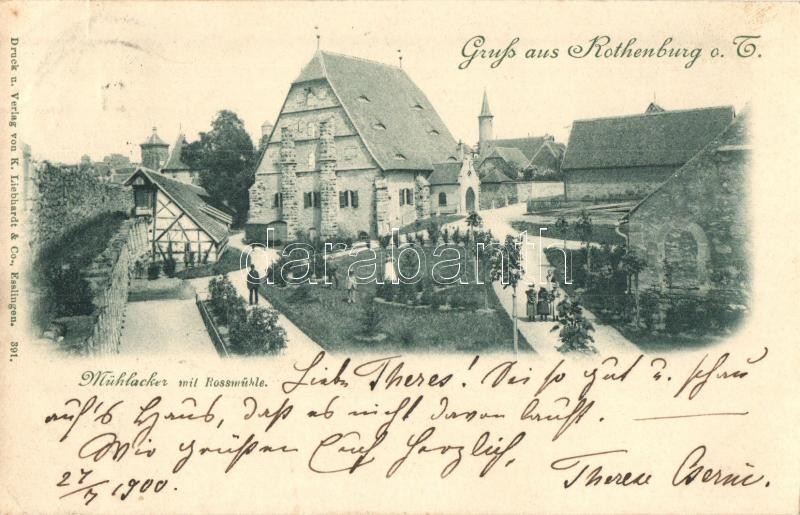 Gruß aus Rothenburg o. T.
Druck u. Verlag von K. Liebhardt & Co., Esslingen. 391.
darabanth.com
Mühlacker mit Rossmühle.
Liebe Theres! Sei so gut u. schau
auf's Haus, daß es nicht davon lauft.
Wir grüßen Euch herzlich,
27/7 1900. Therese